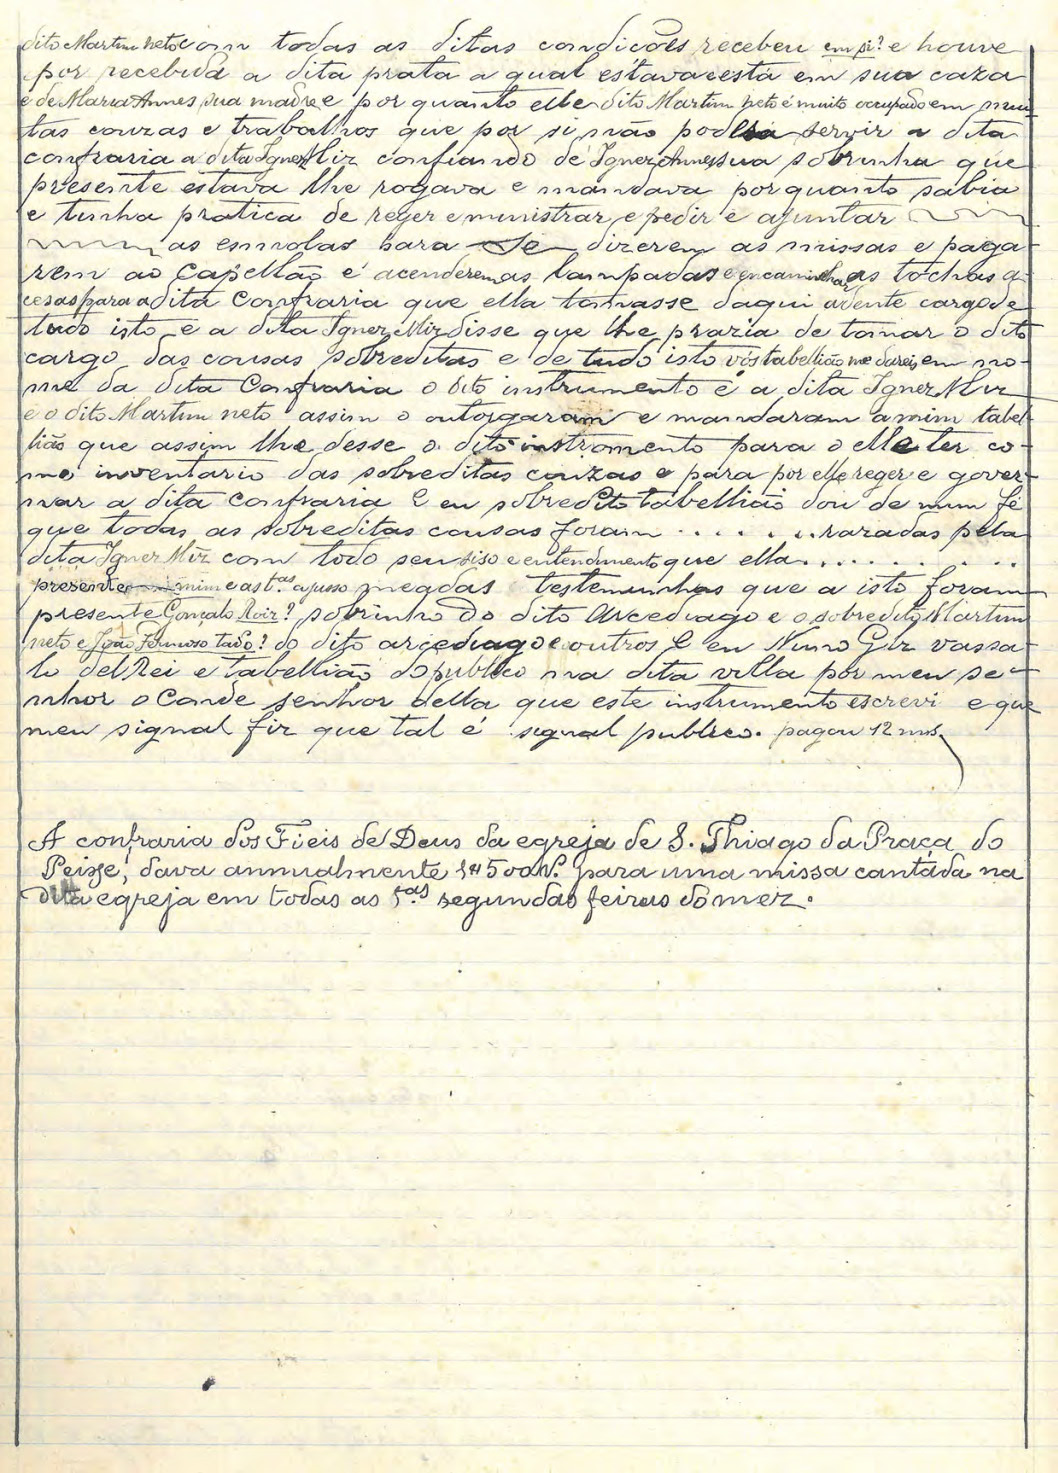 dito Martim neto com todas as ditas condicões recebeu em si? e houve
por recebida a dita prata a qual estava e está em sua caza
e de Maria Annes sua madre e por quanto elle dito Martim neto é muito occupado em mui-
tas couzas e trabalhos que por si não podesa servir a dita
confraria a dita Ignez Miz confiando de Ignez Annes sua sobrinha que
presente estava lhe rogava e mandava por quanto sabia
e tinha pratica de reger e ministrar e pedir e ajuntar
as esmolas para se dizerem as missas e paga-
rem ao Capellão e acenderem as lampadas e encaminhar as tochas a-
cesas para a dita Confraria que ella tomasse daqui adente cargo de
tudo isto e a dita Ignez Miz disse que lhe prazia de tomar o dito
cargo das cousas sobreditas e de tudo isto vós tabellião me dareis em no-
me da dita Confraria o dito instrumento e a dita Ignez Miz
e o dito Martim neto assim o outorgaram e mandaram a mim tabel-
lião que assim lhe desse o dito instromento para o elle ter co-
mo inventario das sobreditas couzas e para por elle reger e gover-
nar a dita confraria E eu sobredito tabellião dou de mim fé
que todas as sobreditas cousas foram . . . . . . raradas pela
dita Ignez Miz com todo seu siso e entendimento que ella . . . . . . . .
presente mim e as t.as a juso megadas testemunhas que a isto foram
presente Gonçalo Roiz? sobrinho do dito Arcediago e o sobredito Martim
neto e João Formoso tudo? do dito arcediago e outros E eu Nuno Glz vassa-
lo del Rei e tabellião do publico na dita villa por meu se-
nhor o Conde senhor della que este instrumento escrevi e que
meu signal fiz que tal é signal publico. pagou 12 rrs.
A confraria dos Fieis de Deus da egreja de S. Thiago da Praça do
Peixe, dava annualmente 1$500 rs. para uma missa cantada na
dita egreja em todas as 1.as segundas feiras do mez.